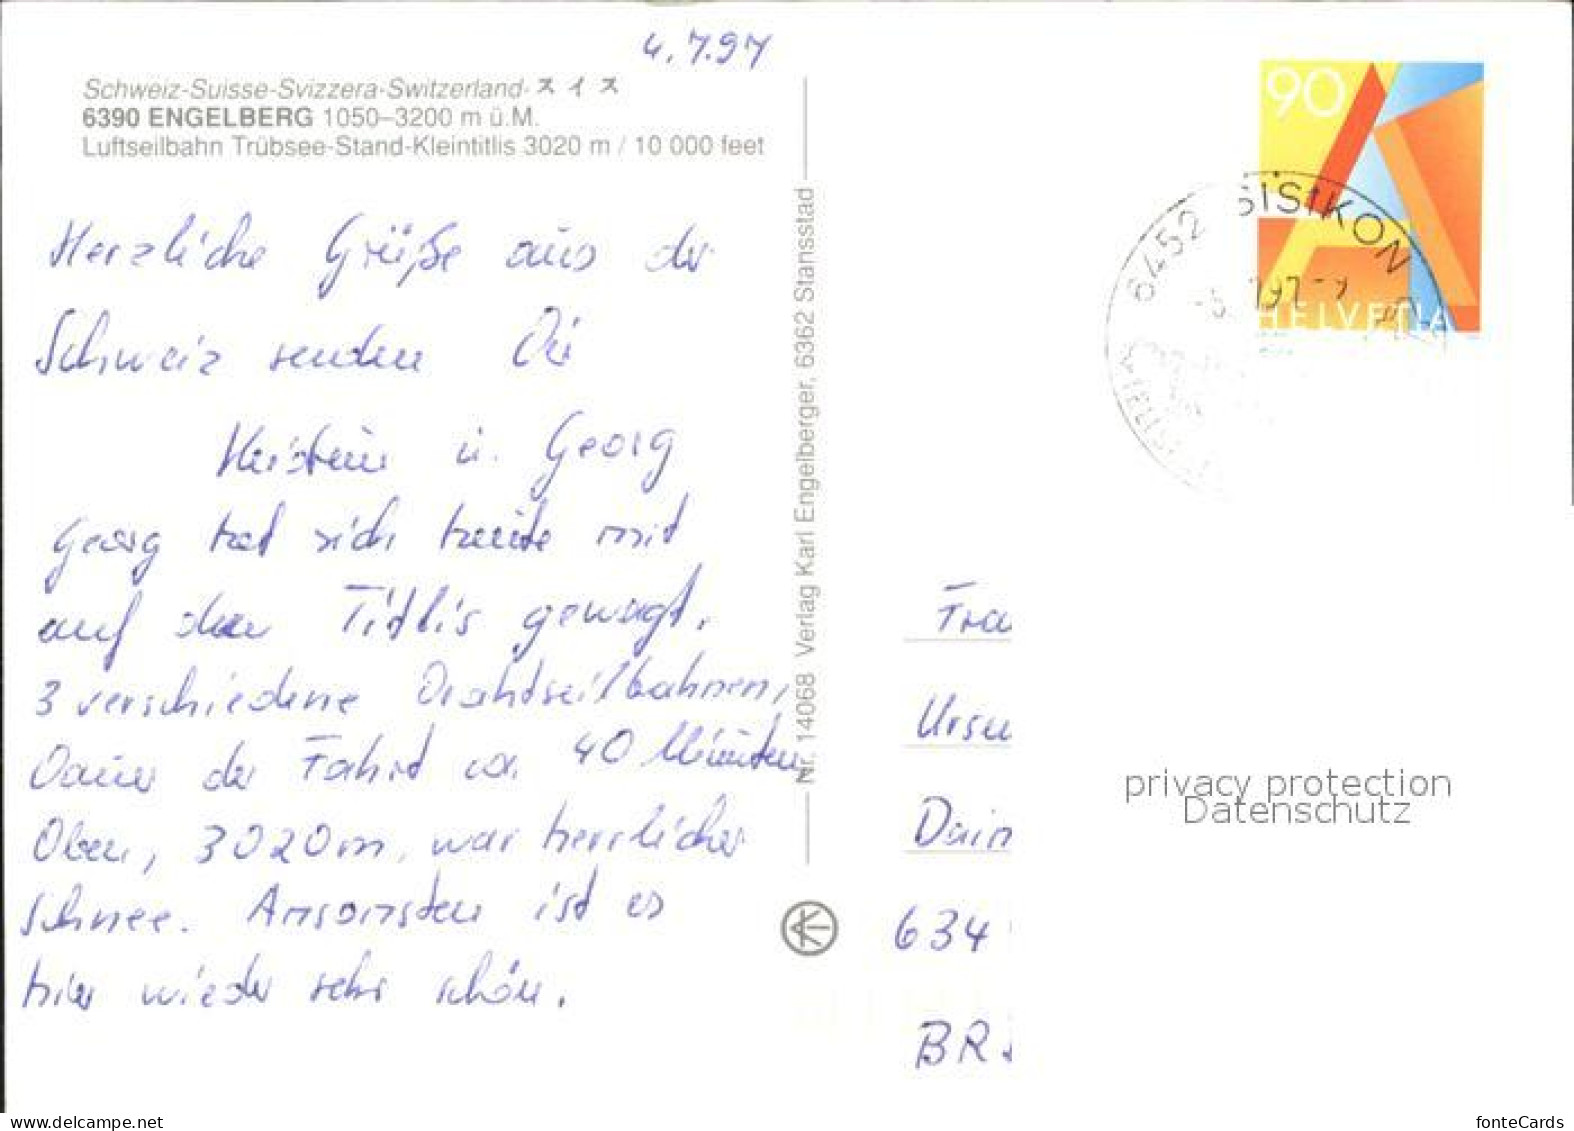 4.7.97
Schweiz-Suisse-Svizzera-Switzerland-スイス
6390 ENGELBERG 1050–3200 m ü.M.
Luftseilbahn Trübsee-Stand-Kleintitlis 3020 m / 10 000 feet
Herzliche Grüße aus der
Schweiz senden Dir
u. Georg
Georg hat sich heute mit
auf den Titlis gewagt.
3 verschiedene Drahtseilbahnen,
Dauer der Fahrt ca. 40 Minuten
Oben, 3020m, war herrlicher
Schnee. Ansonsten ist es
hier wieder sehr schön.
Nr. 14068 Verlag Karl Engelberger, 6362 Stansstad
90
HELVETIA
6452 SISIKON
Frau
Ursu
Daim
634
BR
privacy protection
Datenschutz
www.delcampe.net
fonteCards